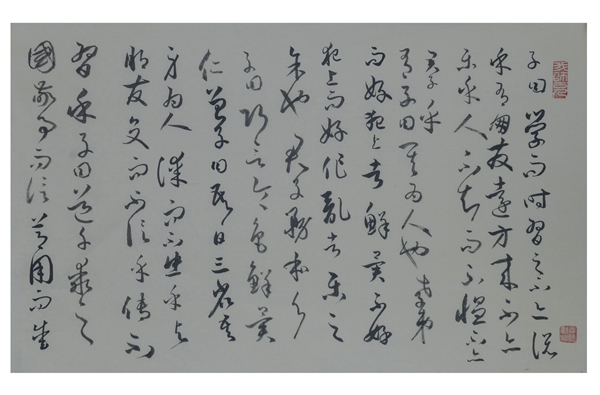 子曰學而時習之不亦說
乎有朋友遠方來不亦
樂乎人不知而不慍不亦
君子乎
有子曰其為人也孝弟
而好犯上者鮮矣不好
犯上而好作亂者未之
有也君子務本
子曰巧言令色鮮矣
仁曾子曰吾日三省吾
身為人謀而不忠乎與
朋友交而不信乎傳不
習乎子曰道千乘之
國敬事而信節用而愛